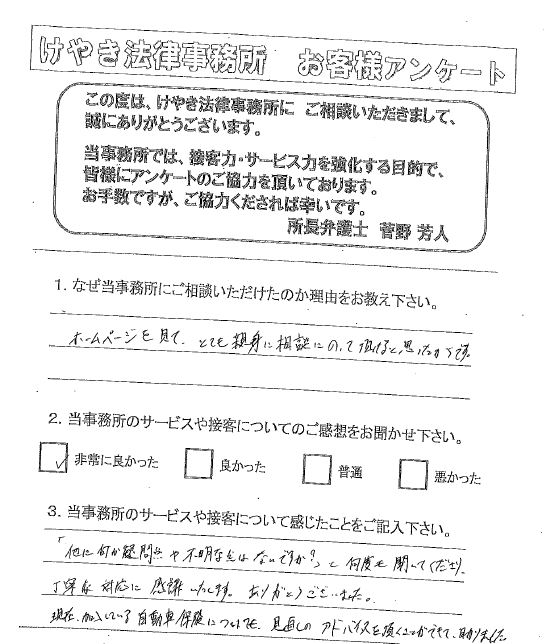 けやき法律事務所　お客様アンケート
この度は、けやき法律事務所に　ご相談いただきまして、
誠にありがとうございます。
当事務所では、接客力・サービス力を強化する目的で、
皆様にアンケートのご協力を頂いております。
お手数ですが、ご協力くだされば幸いです。
所長弁護士　菅野 芳人
1. なぜ当事務所にご相談いただけたのか理由をお教え下さい。
ホームページを見て、とても親身に相談にのって頂けると思ったからです。
2. 当事務所のサービスや接客についてのご感想をお聞かせ下さい。
✓ 非常に良かった　□ 良かった　□ 普通　□ 悪かった
3. 当事務所のサービスや接客について感じたことをご記入下さい。
「他に何か疑問点や不明な点はないですか?」と何度も聞いてくださり、
丁寧な対応に感謝いたします。ありがとうございました。
現在、加入している自動車保険についても、見直しのアドバイスを頂くことができて、助かりました